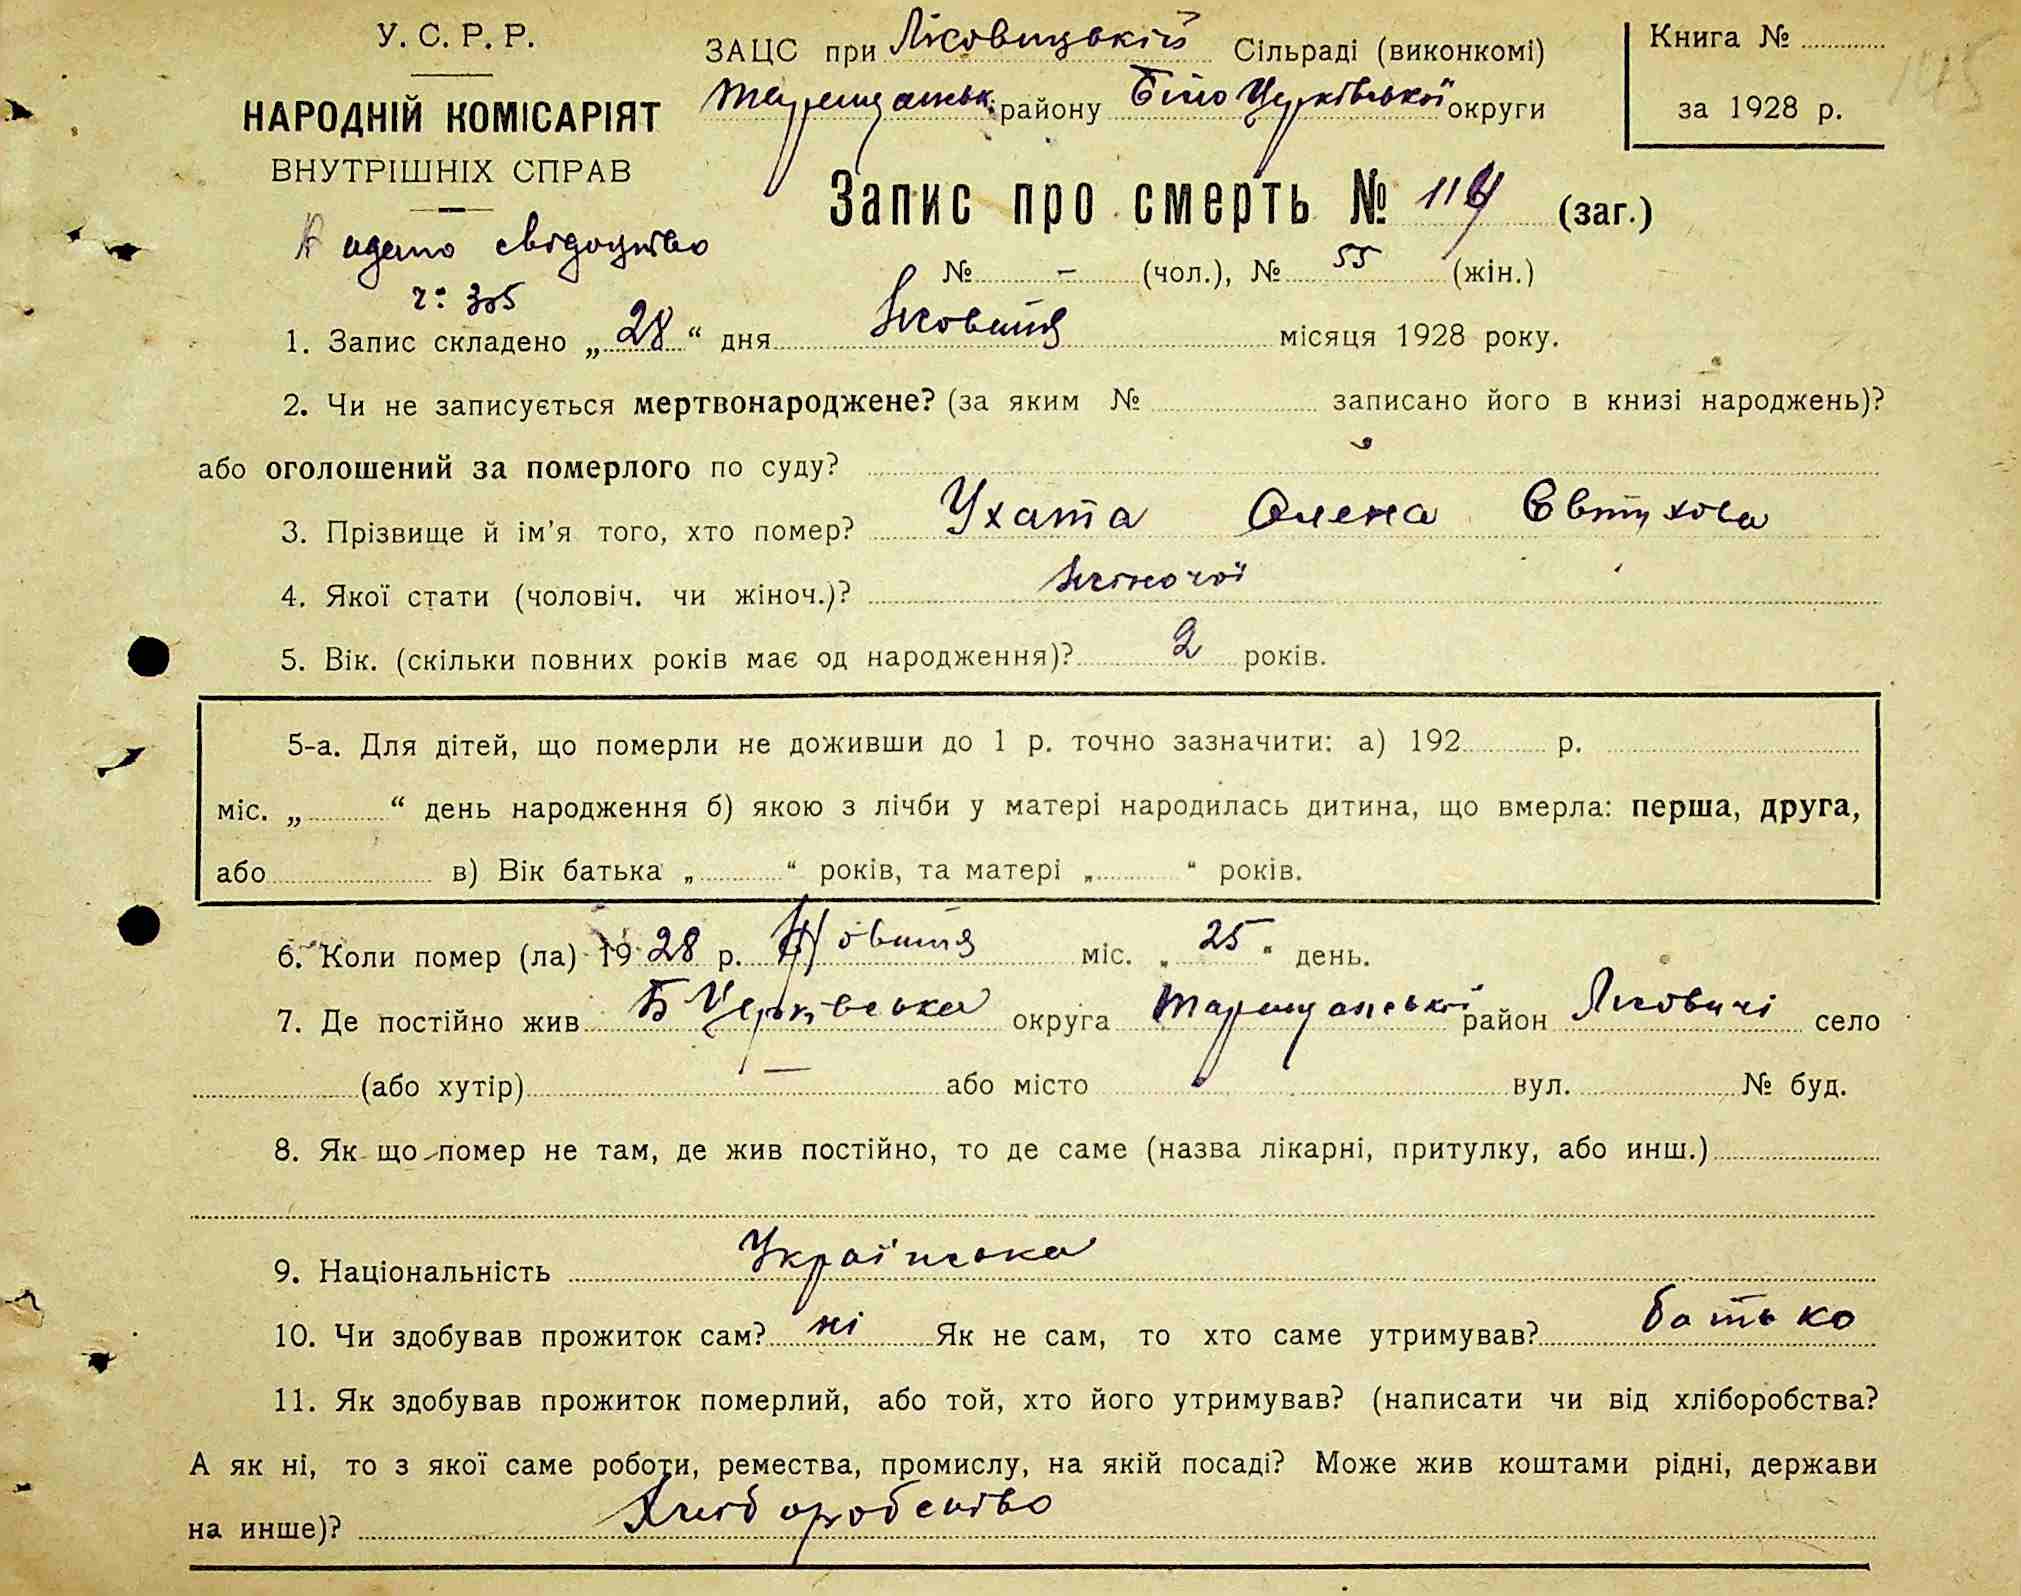 У. С. Р. Р.
НАРОДНІЙ КОМІСАРІЯТ
ВНУТРІШНІХ СПРАВ
ЗАЦС при Лісовицькій Сільраді (виконкомі)
Таращанськ. району Біло Церківської округи
Книга №
за 1928 р.
Запис про смерть № 114 (заг.)
видано свідоцтво
ч: 305
№ – (чол.), № 55 (жін.)
1. Запис складено „ 28 “ дня Жовтня місяця 1928 року.
2. Чи не записується мертвонароджене? (за яким № записано його в книзі народжень)?
або оголошений за померлого по суду?
3. Прізвище й ім’я того, хто помер? Ухата Олена Євтухова
4. Якої стати (чоловіч. чи жіноч.)? жіночої
5. Вік. (скільки повних років має од народження)? 2 років.
5-а. Для дітей, що померли не доживши до 1 р. точно зазначити: а) 192 р.
міс. „ “ день народження б) якою з лічби у матері народилась дитина, що вмерла: перша, друга,
або в) Вік батька „ “ років, та матері „ “ років.
6. Коли помер (ла) 19 28 р. Жовтня міс. „ 25 “ день.
7. Де постійно жив Б Церківська округа Таращанський район Лісовичі село
(або хутір) — або місто вул. № буд.
8. Як що помер не там, де жив постійно, то де саме (назва лікарні, притулку, або инш.)
9. Національність Українська
10. Чи здобував прожиток сам? ні Як не сам, то хто саме утримував? батько
11. Як здобував прожиток померлий, або той, хто його утримував? (написати чи від хліборобства?
А як ні, то з якої саме роботи, ремества, промислу, на якій посаді? Може жив коштами рідні, держави
на инше)? Хліборобство